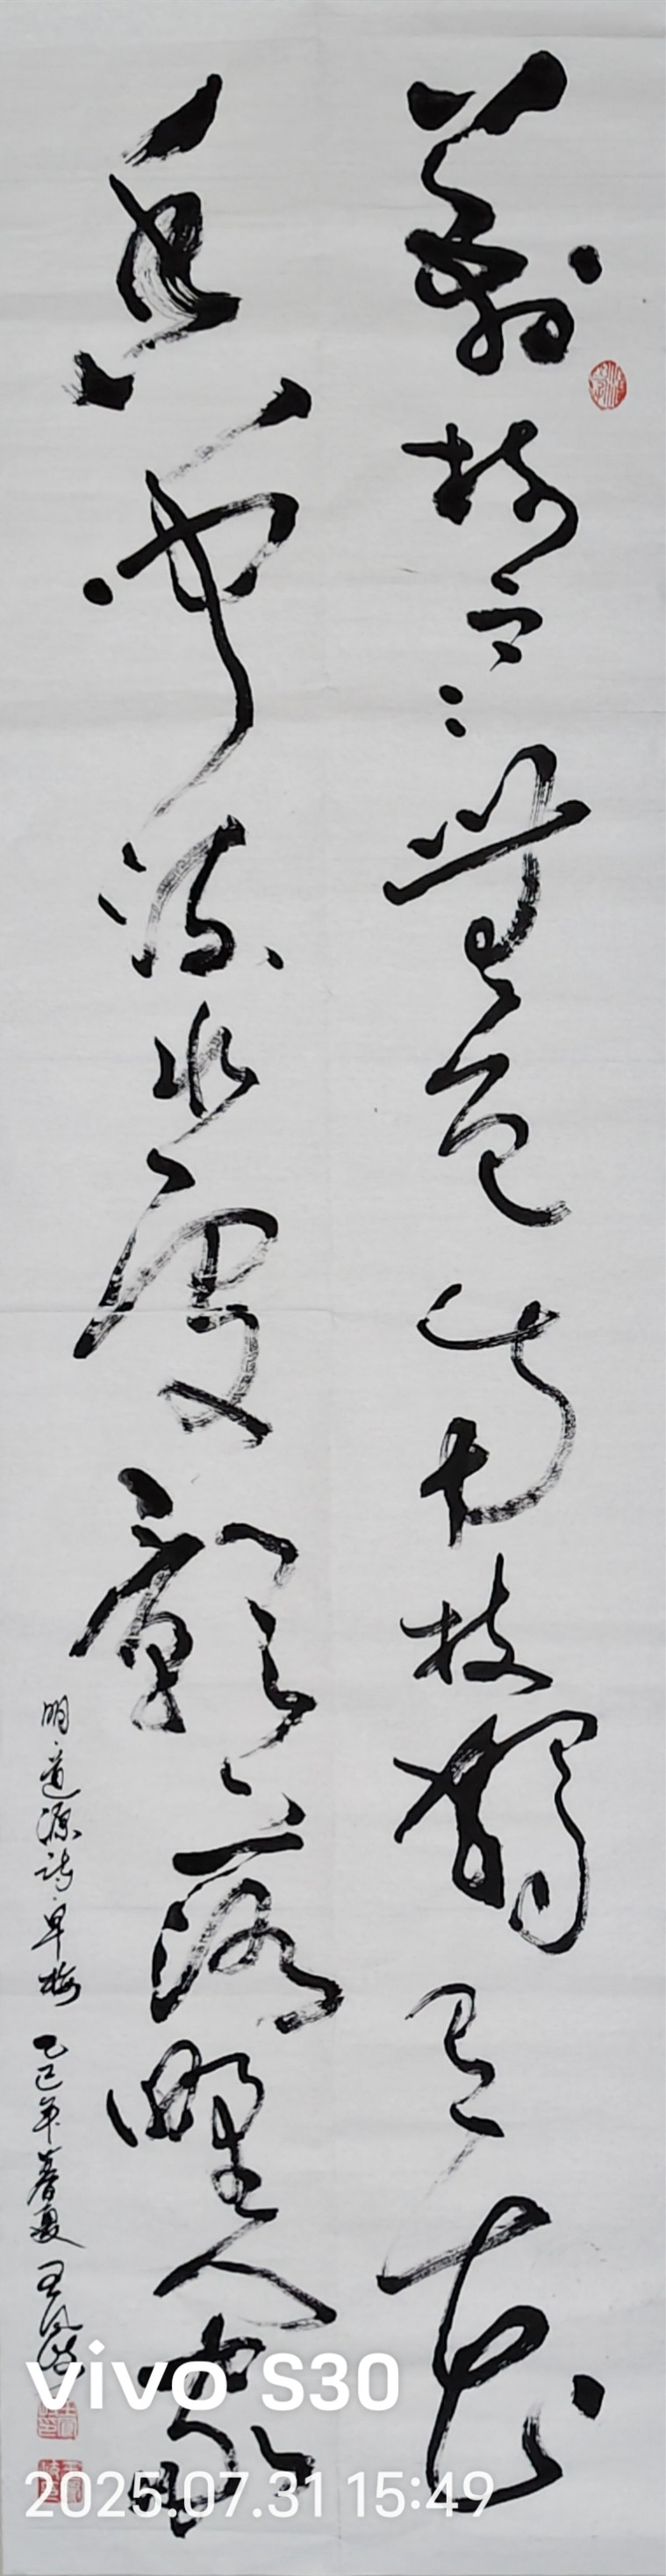 萬树寒無色南枝獨有花
香聞流水處影落野人家
明道源詩早梅 乙巳年暮夏 王
vivo S30
2025.07.31 15:49